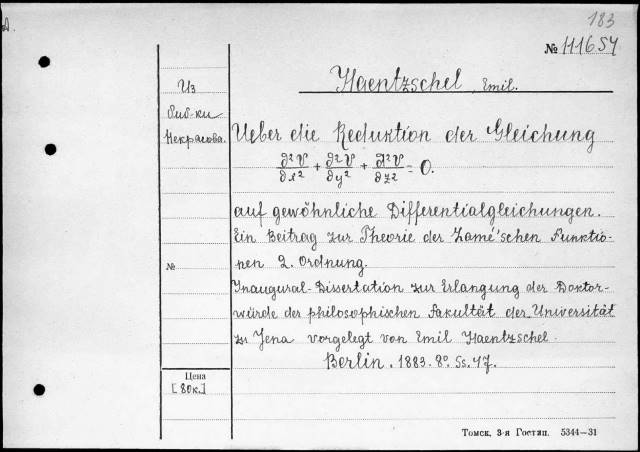 183
№ 111654
Haentzschel, Emil.
Из
биб-ки
Некрасова.
Ueber die Reduktion der Gleichung
∂²V/∂x² + ∂²V/∂y² + ∂²V/∂z² = 0.
auf gewöhnliche Differentialgleichungen.
Ein Beitrag zur Theorie der Lamé'schen Funktio-
nen 2. Ordnung.
№
Inaugural-Dissertation zur Erlangung der Doktor-
würde der philosophischen Fakultät der Universität
zu Jena vorgelegt von Emil Haentzschel.
Berlin. 1883. 8º. Ss. 47.
Цена
[80к.]
Томск, 3-я Гостип. 5344—31